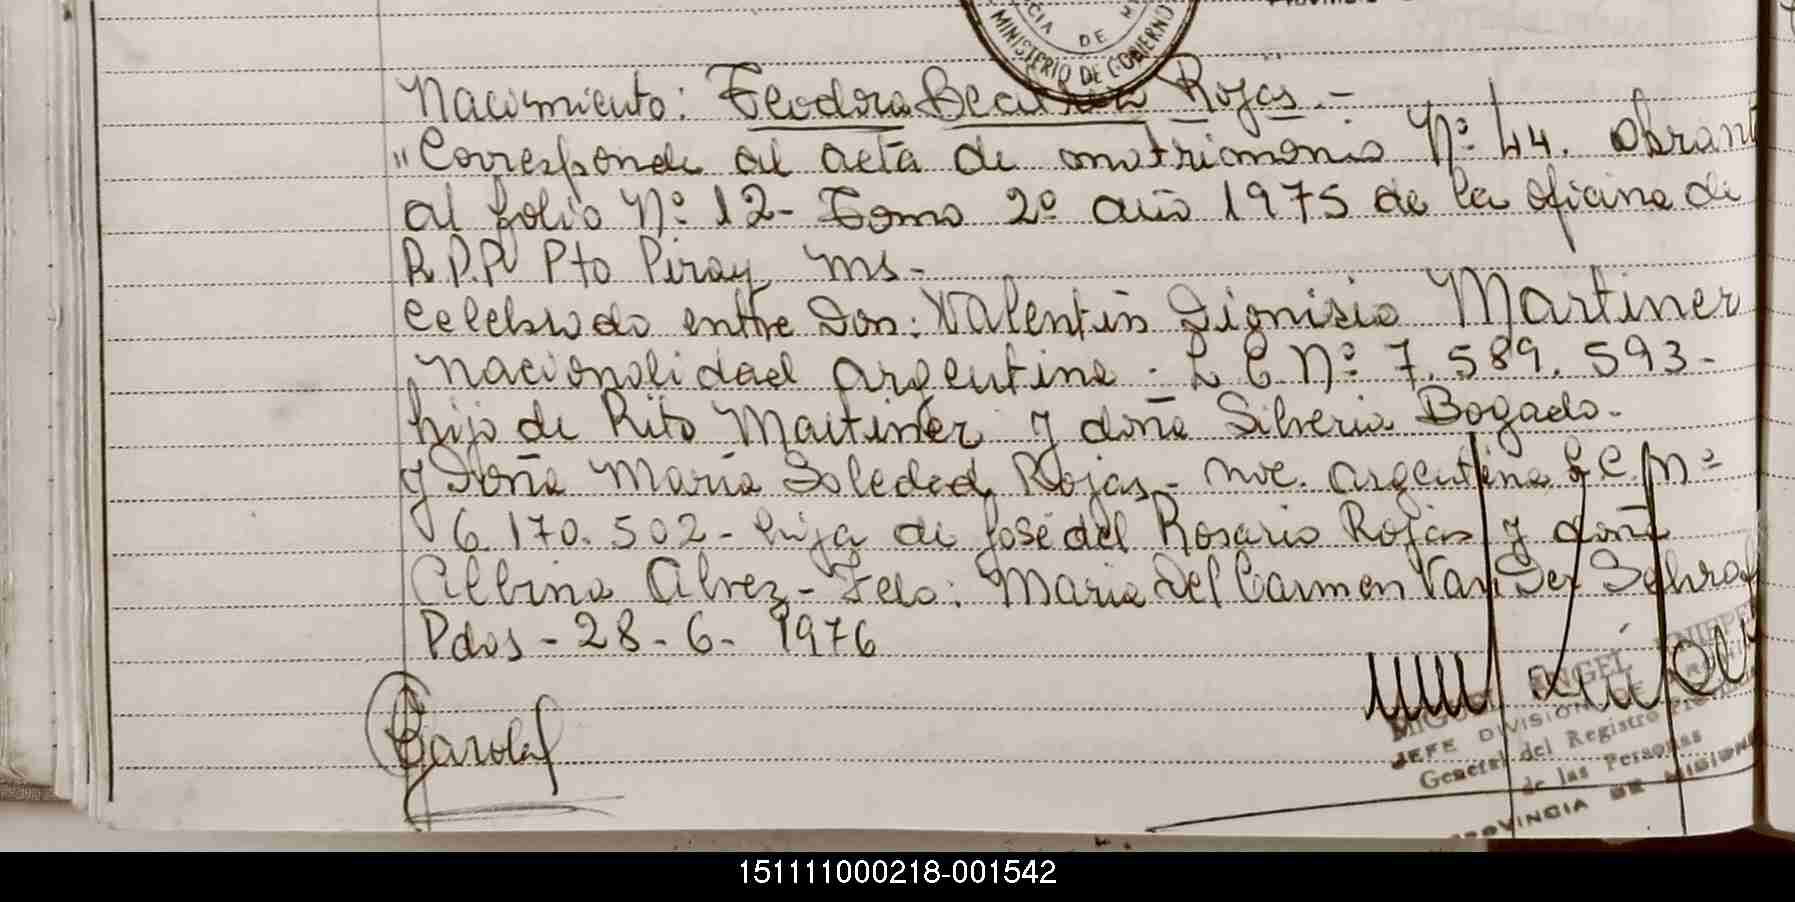 CIA DE MI
MINISTERIO DE GOBIERNO
Nacimiento: Teodora Beatriz Rojas.-
"Corresponde al acta de matrimonio Nº 44. obrant
al folio Nº 12- Tomo 2º año 1975 de la oficina de
R.P.P. Pto Piray Ms-
Celebrado entre Don: Valentin Dionisio Martinez
Nacionalidad argentina. L E Nº 7.589.593-
hijo de Rito Martinez y doña Silveria Bogado.
y Doña Maria Soledad Rojas- Nac. argentina L.C. Nº
6.170.502- hija de José del Rosario Rojas y doña
Albina Alvez- Fdo: Maria Del Carmen Van Der
Pdas- 28-6-1976
MIGUEL ANGEL
JEFE DIVISION
General del Registro
de las Personas
PROVINCIA DE MISIONES
151111000218-001542